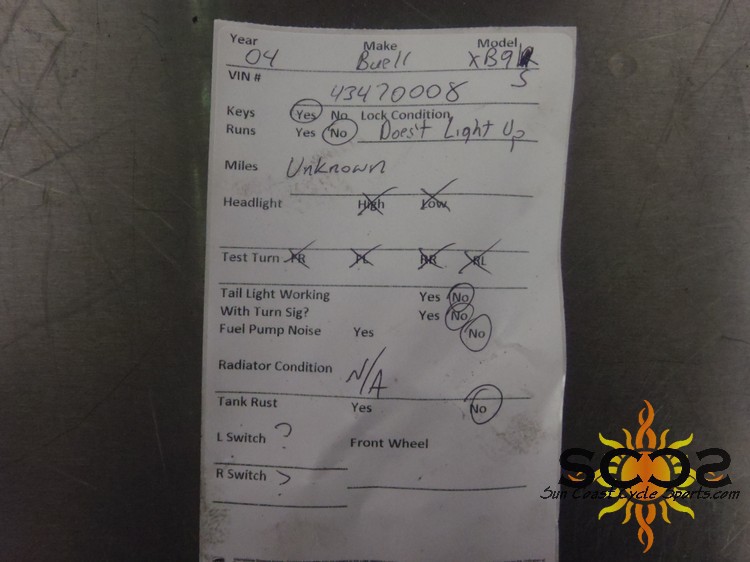 Year Make Model
04 Buell XB9
S
VIN #
43470008
Keys Yes No Lock Condition
Runs Yes No Does't Light Up
Miles Unknown
Headlight High Low
Test Turn FR FL RR RL
Tail Light Working Yes No
With Turn Sig? Yes No
Fuel Pump Noise Yes No
Radiator Condition N/A
Tank Rust Yes No
L Switch ? Front Wheel
R Switch ?
SCCS
Sun Coast Cycle Sports.com